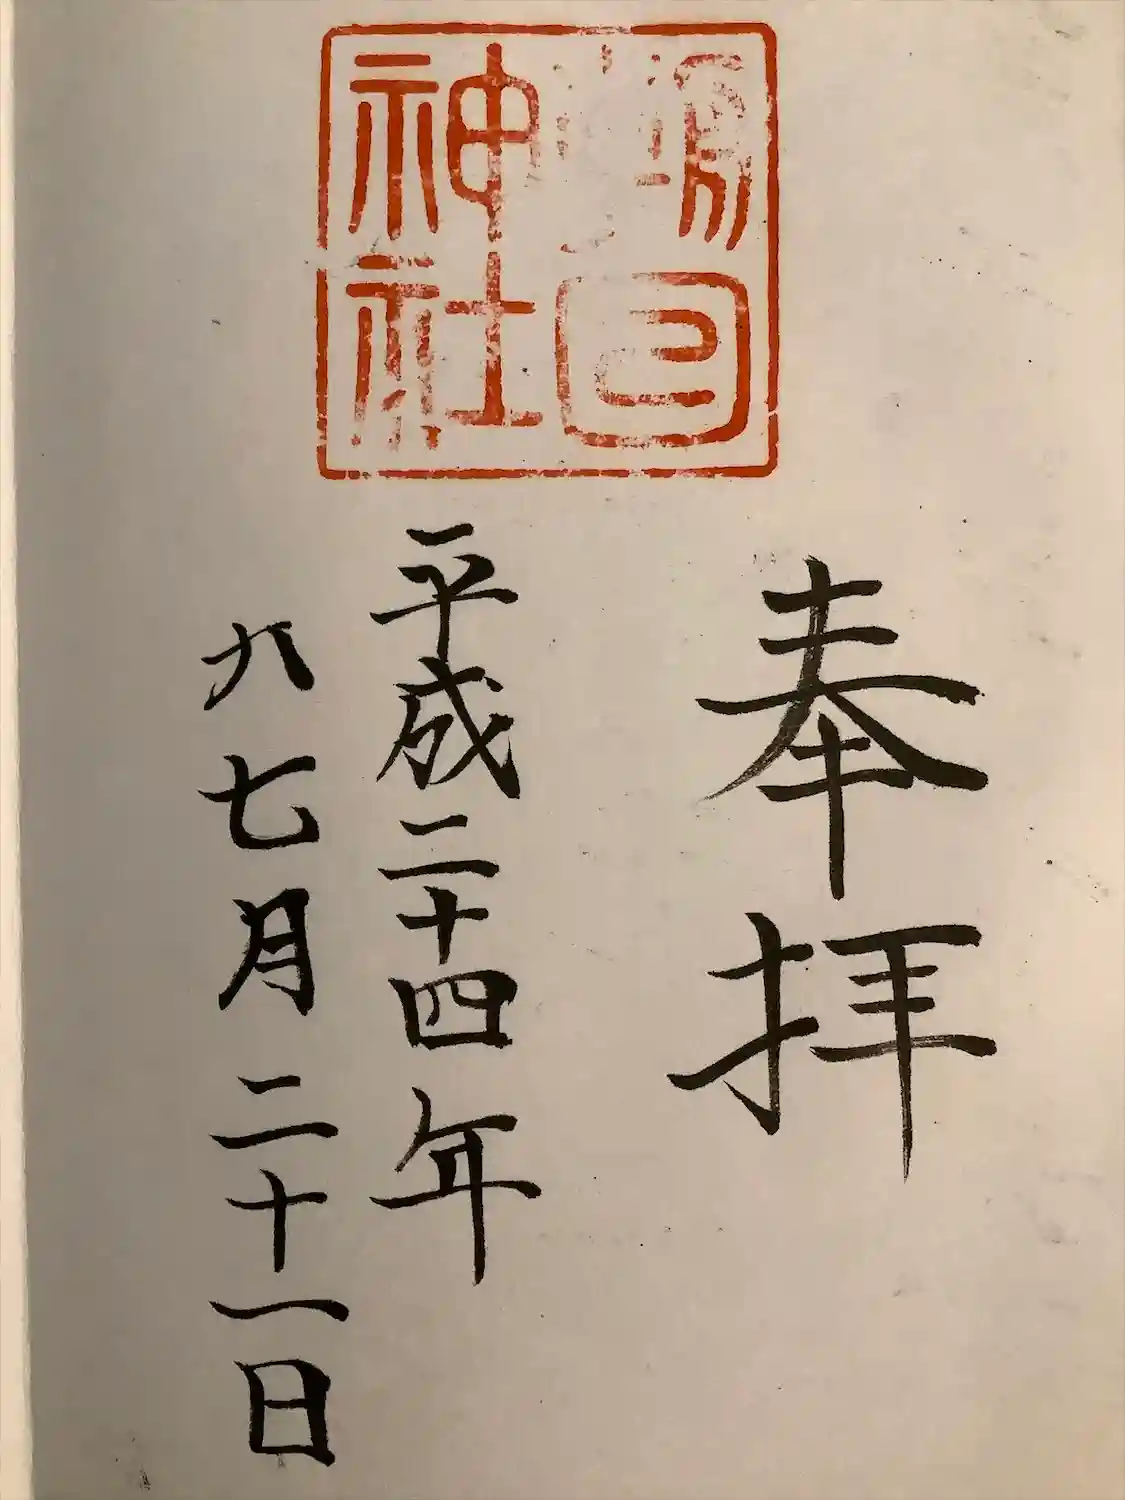 日
神社
奉拝
平成二十四年
七月二十一日